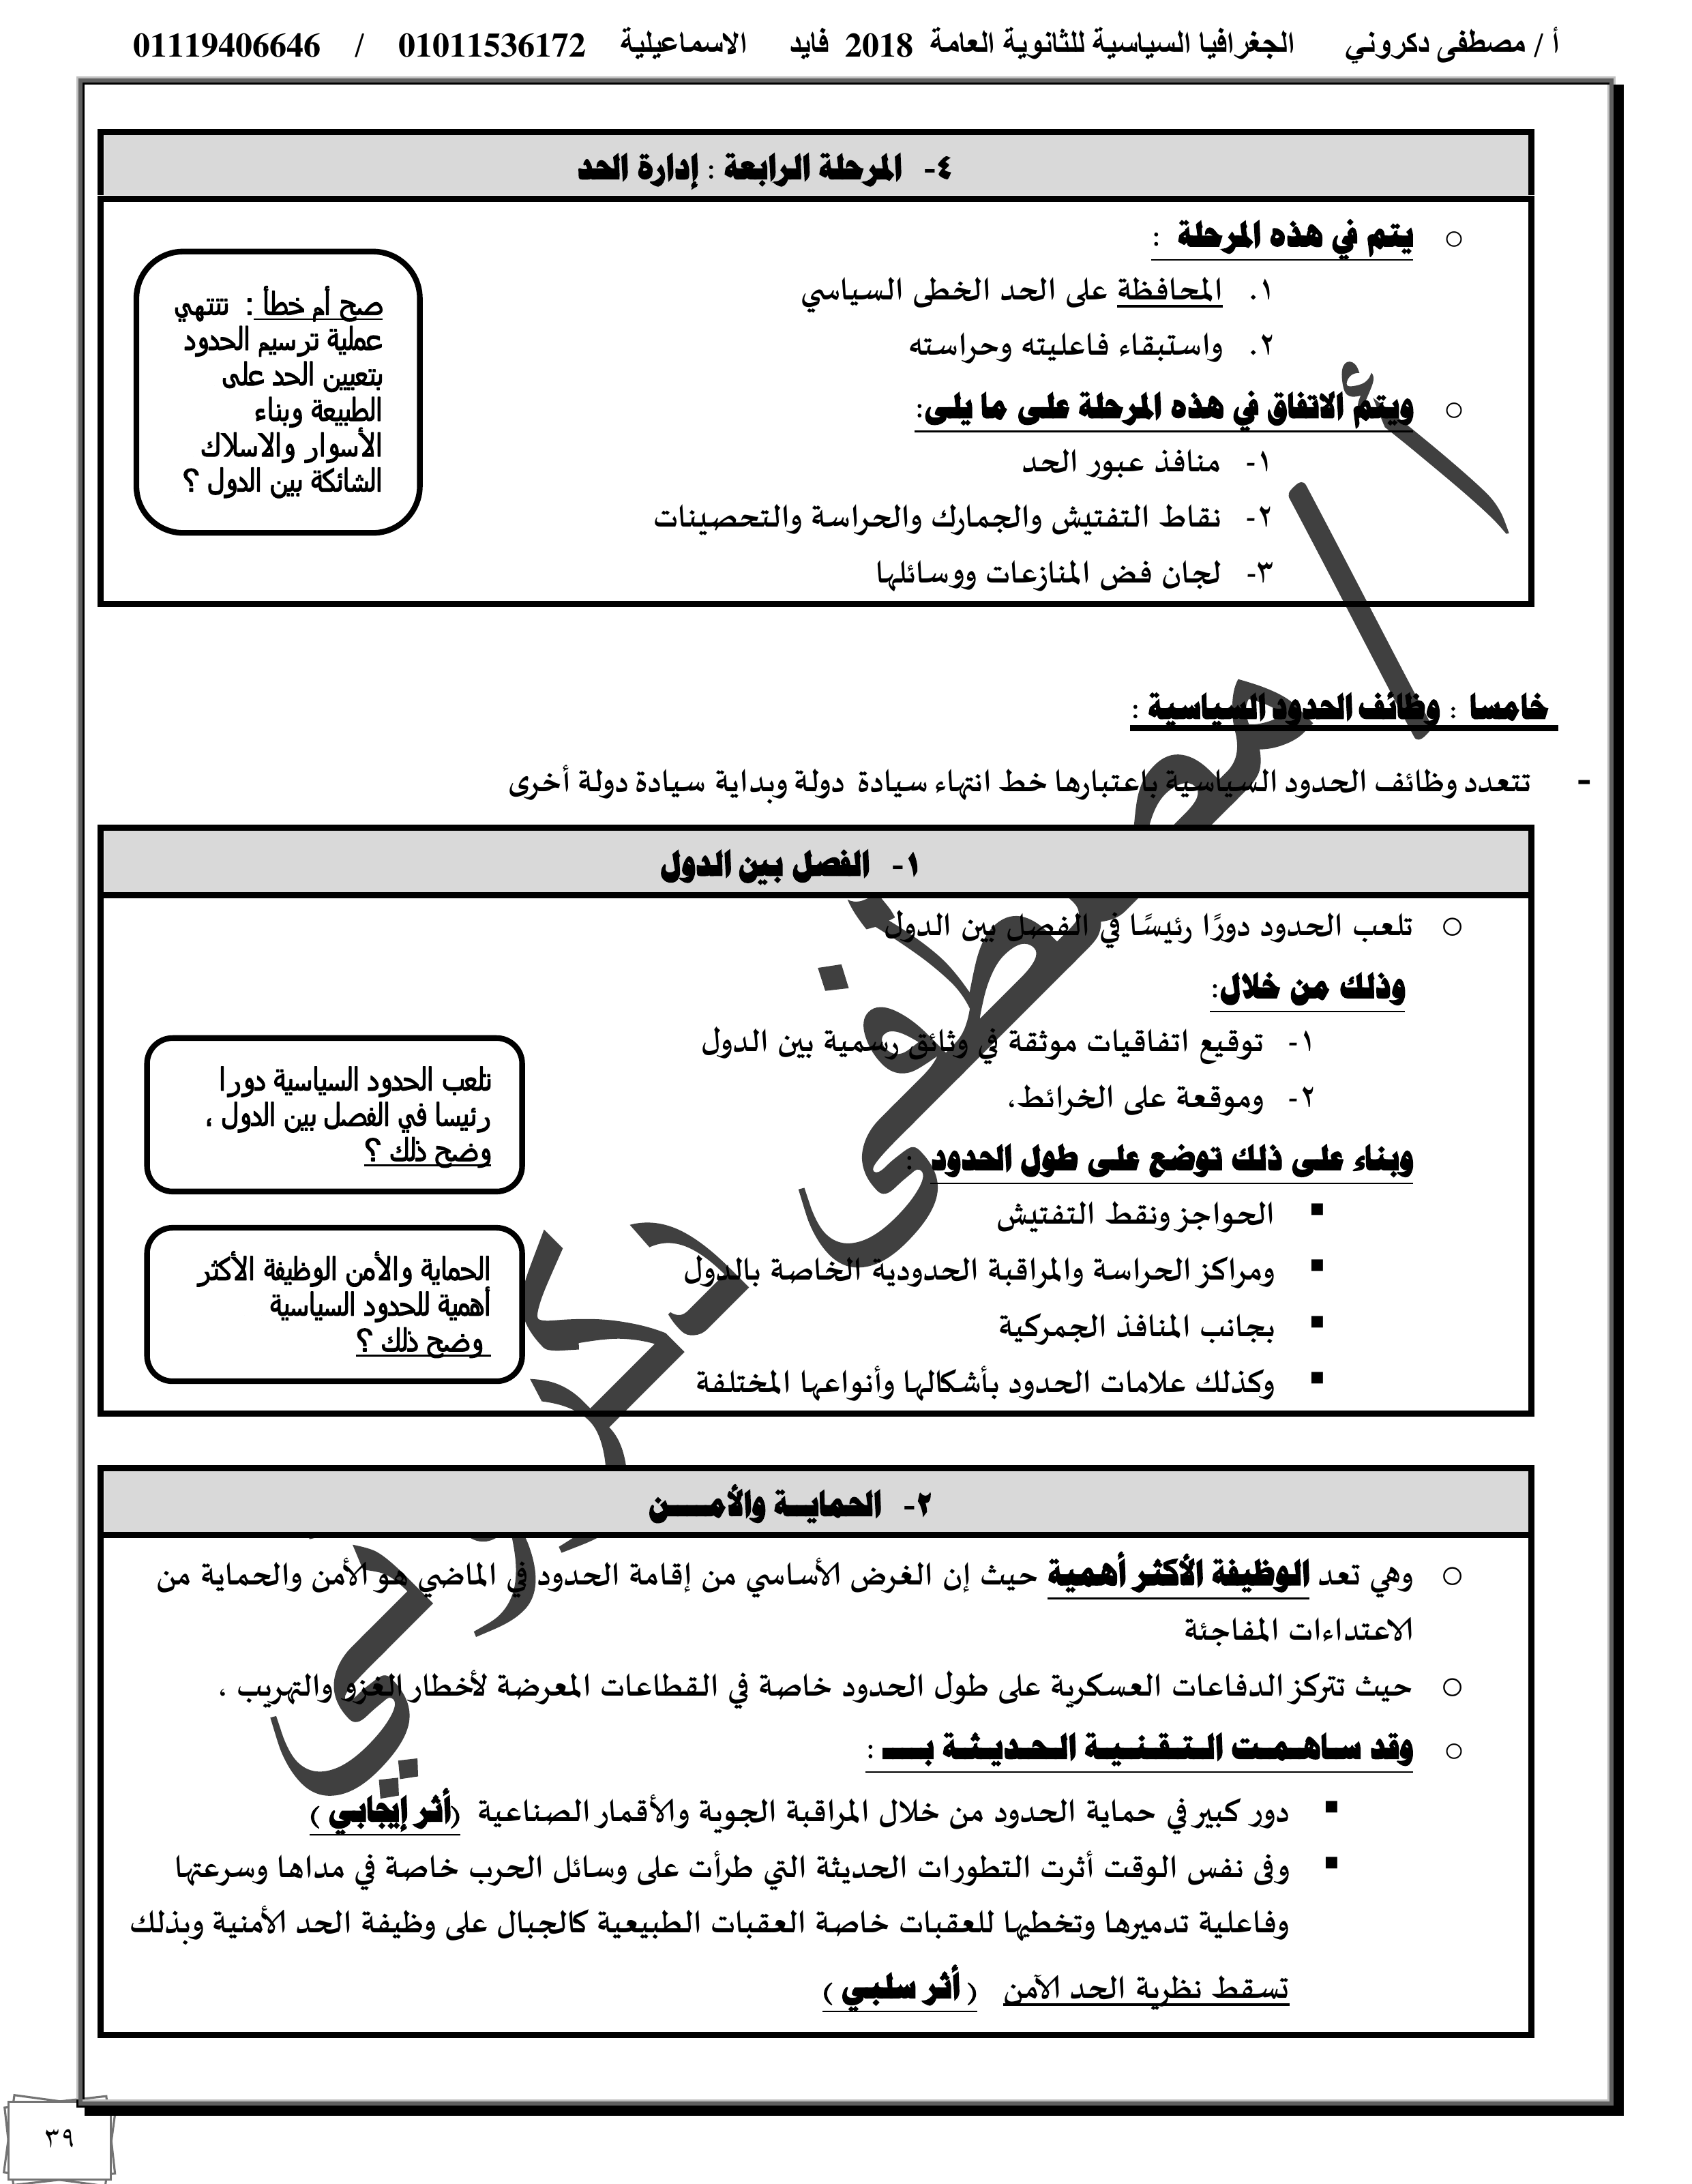 أ / مصطفى دكروني الجغرافيا السياسية للثانوية العامة 2018 فايد الاسماعيلية 01011536172 / 01119406646
٤- المرحلة الرابعة : إدارة الحد
يتم في هذه المرحلة :
١. المحافظة على الحد الخطى السياسي
٢. واستبقاء فاعليته وحراسته
ويتم الاتفاق في هذه المرحلة على ما يلى:
١- منافذ عبور الحد
٢- نقاط التفتيش والجمارك والحراسة والتحصينات
٣- لجان فض المنازعات ووسائلها
صح أم خطأ : تنتهي
عملية ترسيم الحدود
بتعيين الحد على
الطبيعة وبناء
الأسوار والاسلاك
الشائكة بين الدول ؟
خامسا : وظائف الحدود السياسية :
- تتعدد وظائف الحدود السياسية باعتبارها خط انتهاء سيادة دولة وبداية سيادة دولة أخرى
١- الفصل بين الدول
تلعب الحدود دورًا رئيسًا في الفصل بين الدول
وذلك من خلال:
١- توقيع اتفاقيات موثقة في وثائق رسمية بين الدول
٢- وموقعة على الخرائط،
وبناء على ذلك توضع على طول الحدود :
الحواجز ونقط التفتيش
ومراكز الحراسة والمراقبة الحدودية الخاصة بالدول
بجانب المنافذ الجمركية
وكذلك علامات الحدود بأشكالها وأنواعها المختلفة
تلعب الحدود السياسية دورا
رئيسا في الفصل بين الدول ،
وضح ذلك ؟
الحماية والأمن الوظيفة الأكثر
أهمية للحدود السياسية
وضح ذلك ؟
٢- الحمايـــة والأمـــــن
وهي تعد الوظيفة الأكثر أهمية حيث إن الغرض الأساسي من إقامة الحدود في الماضي هو الأمن والحماية من
الاعتداءات المفاجئة
حيث تتركز الدفاعات العسكرية على طول الحدود خاصة في القطاعات المعرضة لأخطار الغزو والتهريب ،
وقد ساهمت التقنية الحديثة بـــ :
دور كبير في حماية الحدود من خلال المراقبة الجوية والأقمار الصناعية (أثر إيجابي )
وفى نفس الوقت أثرت التطورات الحديثة التي طرأت على وسائل الحرب خاصة في مداها وسرعتها
وفاعلية تدميرها وتخطيها للعقبات خاصة العقبات الطبيعية كالجبال على وظيفة الحد الأمنية وبذلك
تسقط نظرية الحد الآمن ( أثر سلبي )
أ / مصطفى دكروني
٣٩